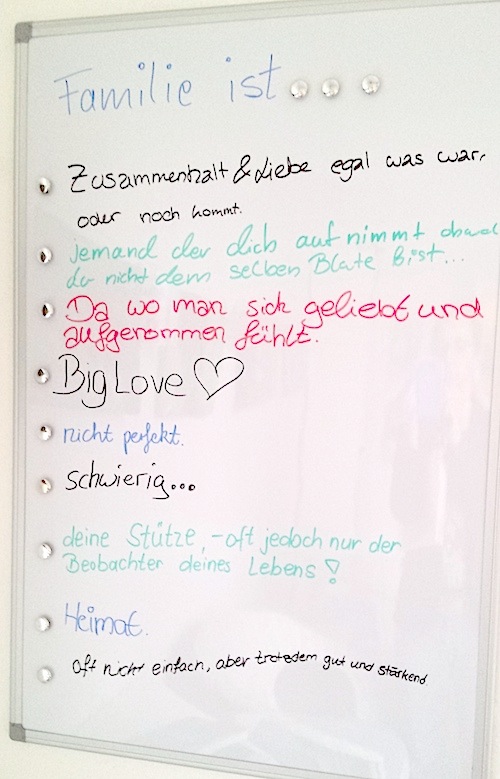 Familie ist...
Zusammenhalt & Liebe egal was war,
oder noch kommt.
jemand der dich auf nimmt obwohl
du nicht dem selben Blute bist...
Da wo man sich geliebt und
aufgenommen fühlt.
Big Love ♡
nicht perfekt.
schwierig...
deine Stütze, - oft jedoch nur der
Beobachter deines Lebens!
Heimat.
oft nicht einfach, aber trotzdem gut und stärkend